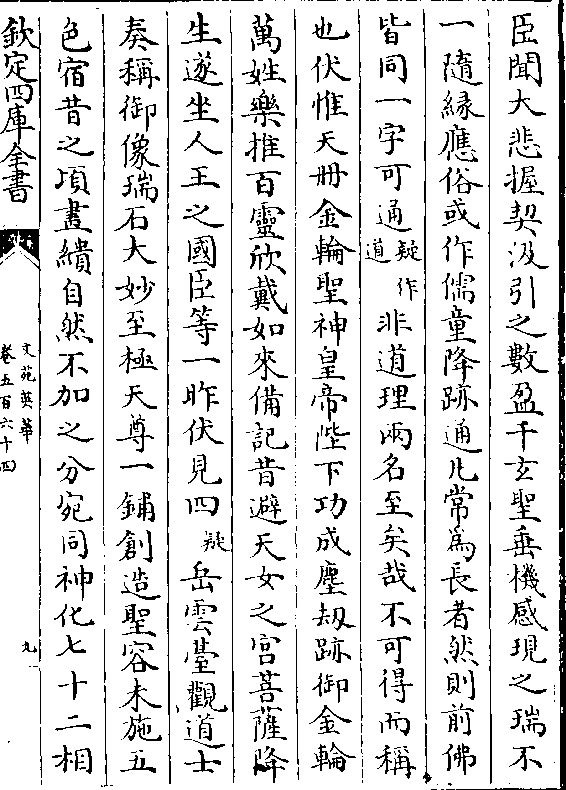 臣聞大悲握契汲引之數盈千玄聖垂機感現之瑞不
一隨縁應俗或作儒童降跡通凡常為長者然則前佛
皆同一字可通疑作道非道理兩名至矣哉不可得而稱
也伏惟天冊金輪聖神皇帝陛下功成塵刼跡御金輪
萬姓樂推百靈欣戴如來備記昔避天女之宮菩薩降
生遂坐人王之國臣等一昨伏見四疑岳雲臺觀道士
奏稱御像瑞石大妙至極天尊一鋪創造聖容未施五
色宿昔之項畫繢自然不加之分宛同神化七十二相
欽定四庫全書
文苑英華
卷五百六十四
九